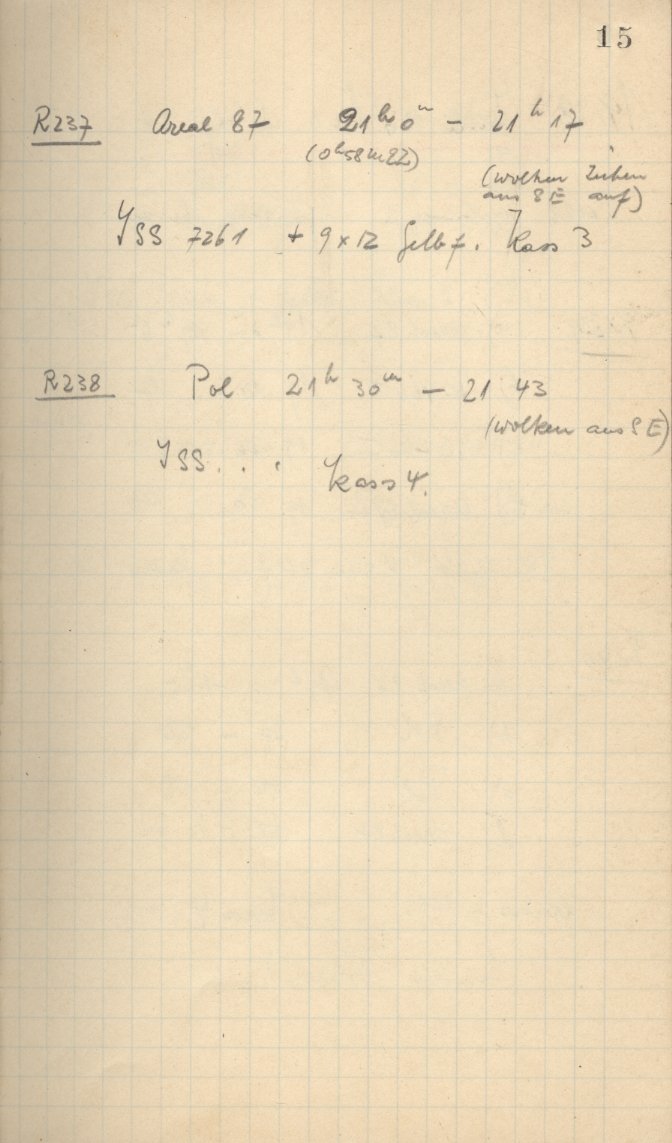 15
R237 Areal 87 21h 0m - 21h 17
(0h58mZZ)
(wolken ziehen
aus SE auf)
JSS 7261 + 9x12 Gelbf. Kass 3
R238 Pol 21h 30m - 21 43
(wolken aus SE)
JSS . . . Kass 4.